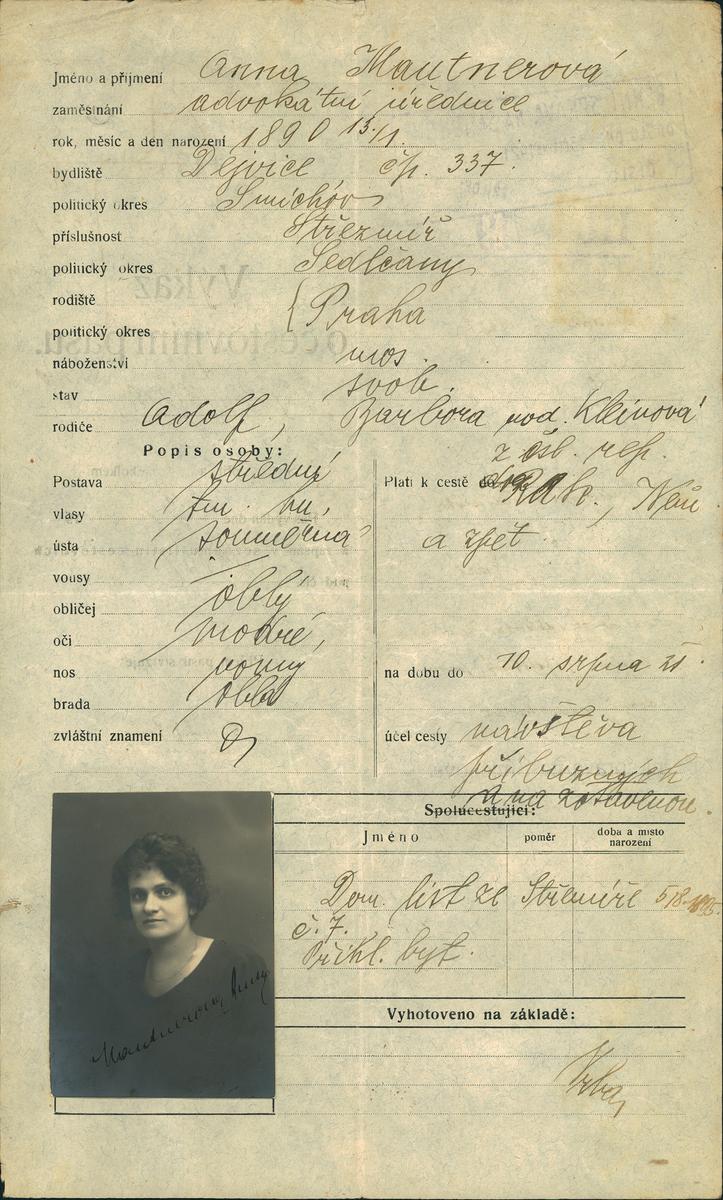 Jméno a příjmení Anna Mautnerová
zaměstnání advokátní úřednice
rok, měsíc a den narození 1890 13./1.
bydliště Dejvice čp. 337.
politický okres Smíchov
příslušnost Střezmíř
politický okres Sedlčany
rodiště { Praha
politický okres
náboženství mos.
stav svob.
rodiče Adolf, Barbora rod. Kleinová
Popis osoby:
Postava střední
vlasy tm. hn.
ústa souměrná
vousy /
obličej oblý
oči modré,
nos rovný
brada oblá
zvláštní znamení
z čsl. rep.
Platí k cestě do Rak., Něm
a zpět
na dobu do 10. srpna 21.
účel cesty návštěva
příbuzných
a na zotavenou.
Spolucestující:
Jméno poměr doba a místo narození
Dom. list ze Střezmíře
č. 7.
Přihl. byt.
Vyhotoveno na základě:
Vrba
Mautnerová Anna
Výkaz
o cestovním pasu.